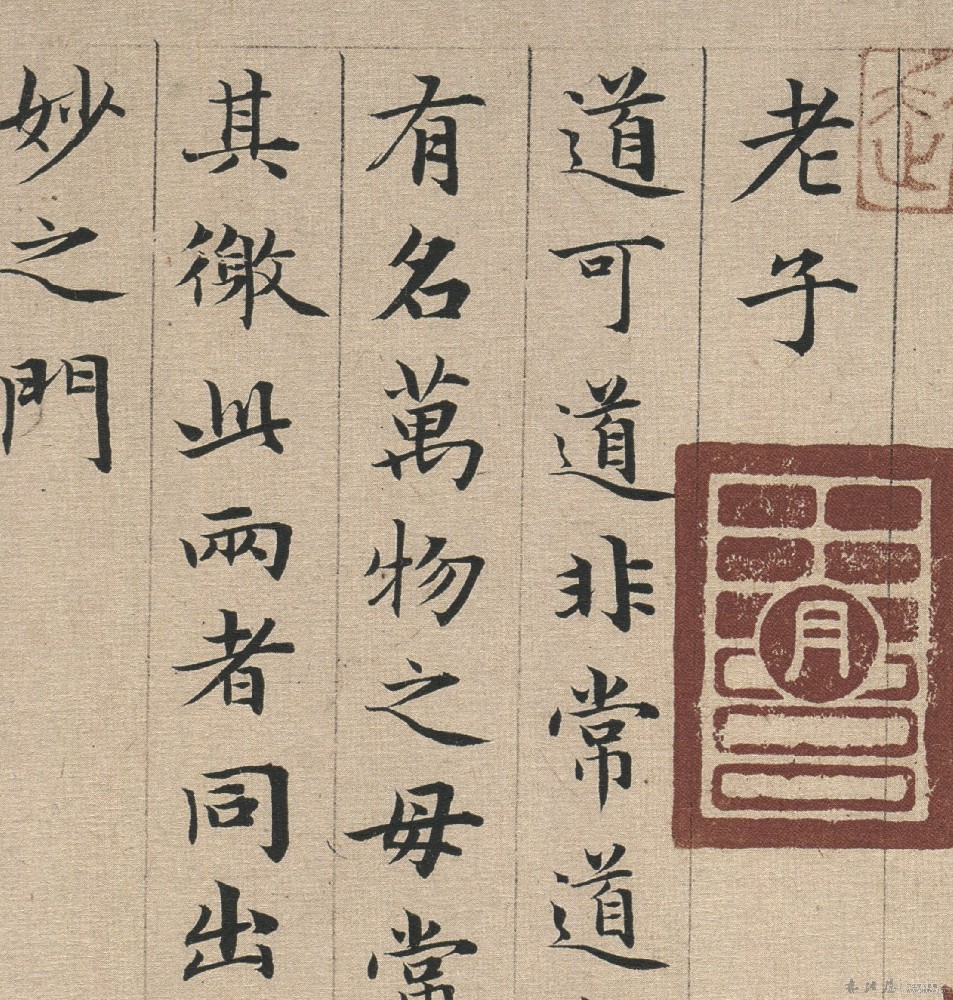 老子
道可道非常道
有名萬物之母常
其徼此兩者同出
妙之門
月